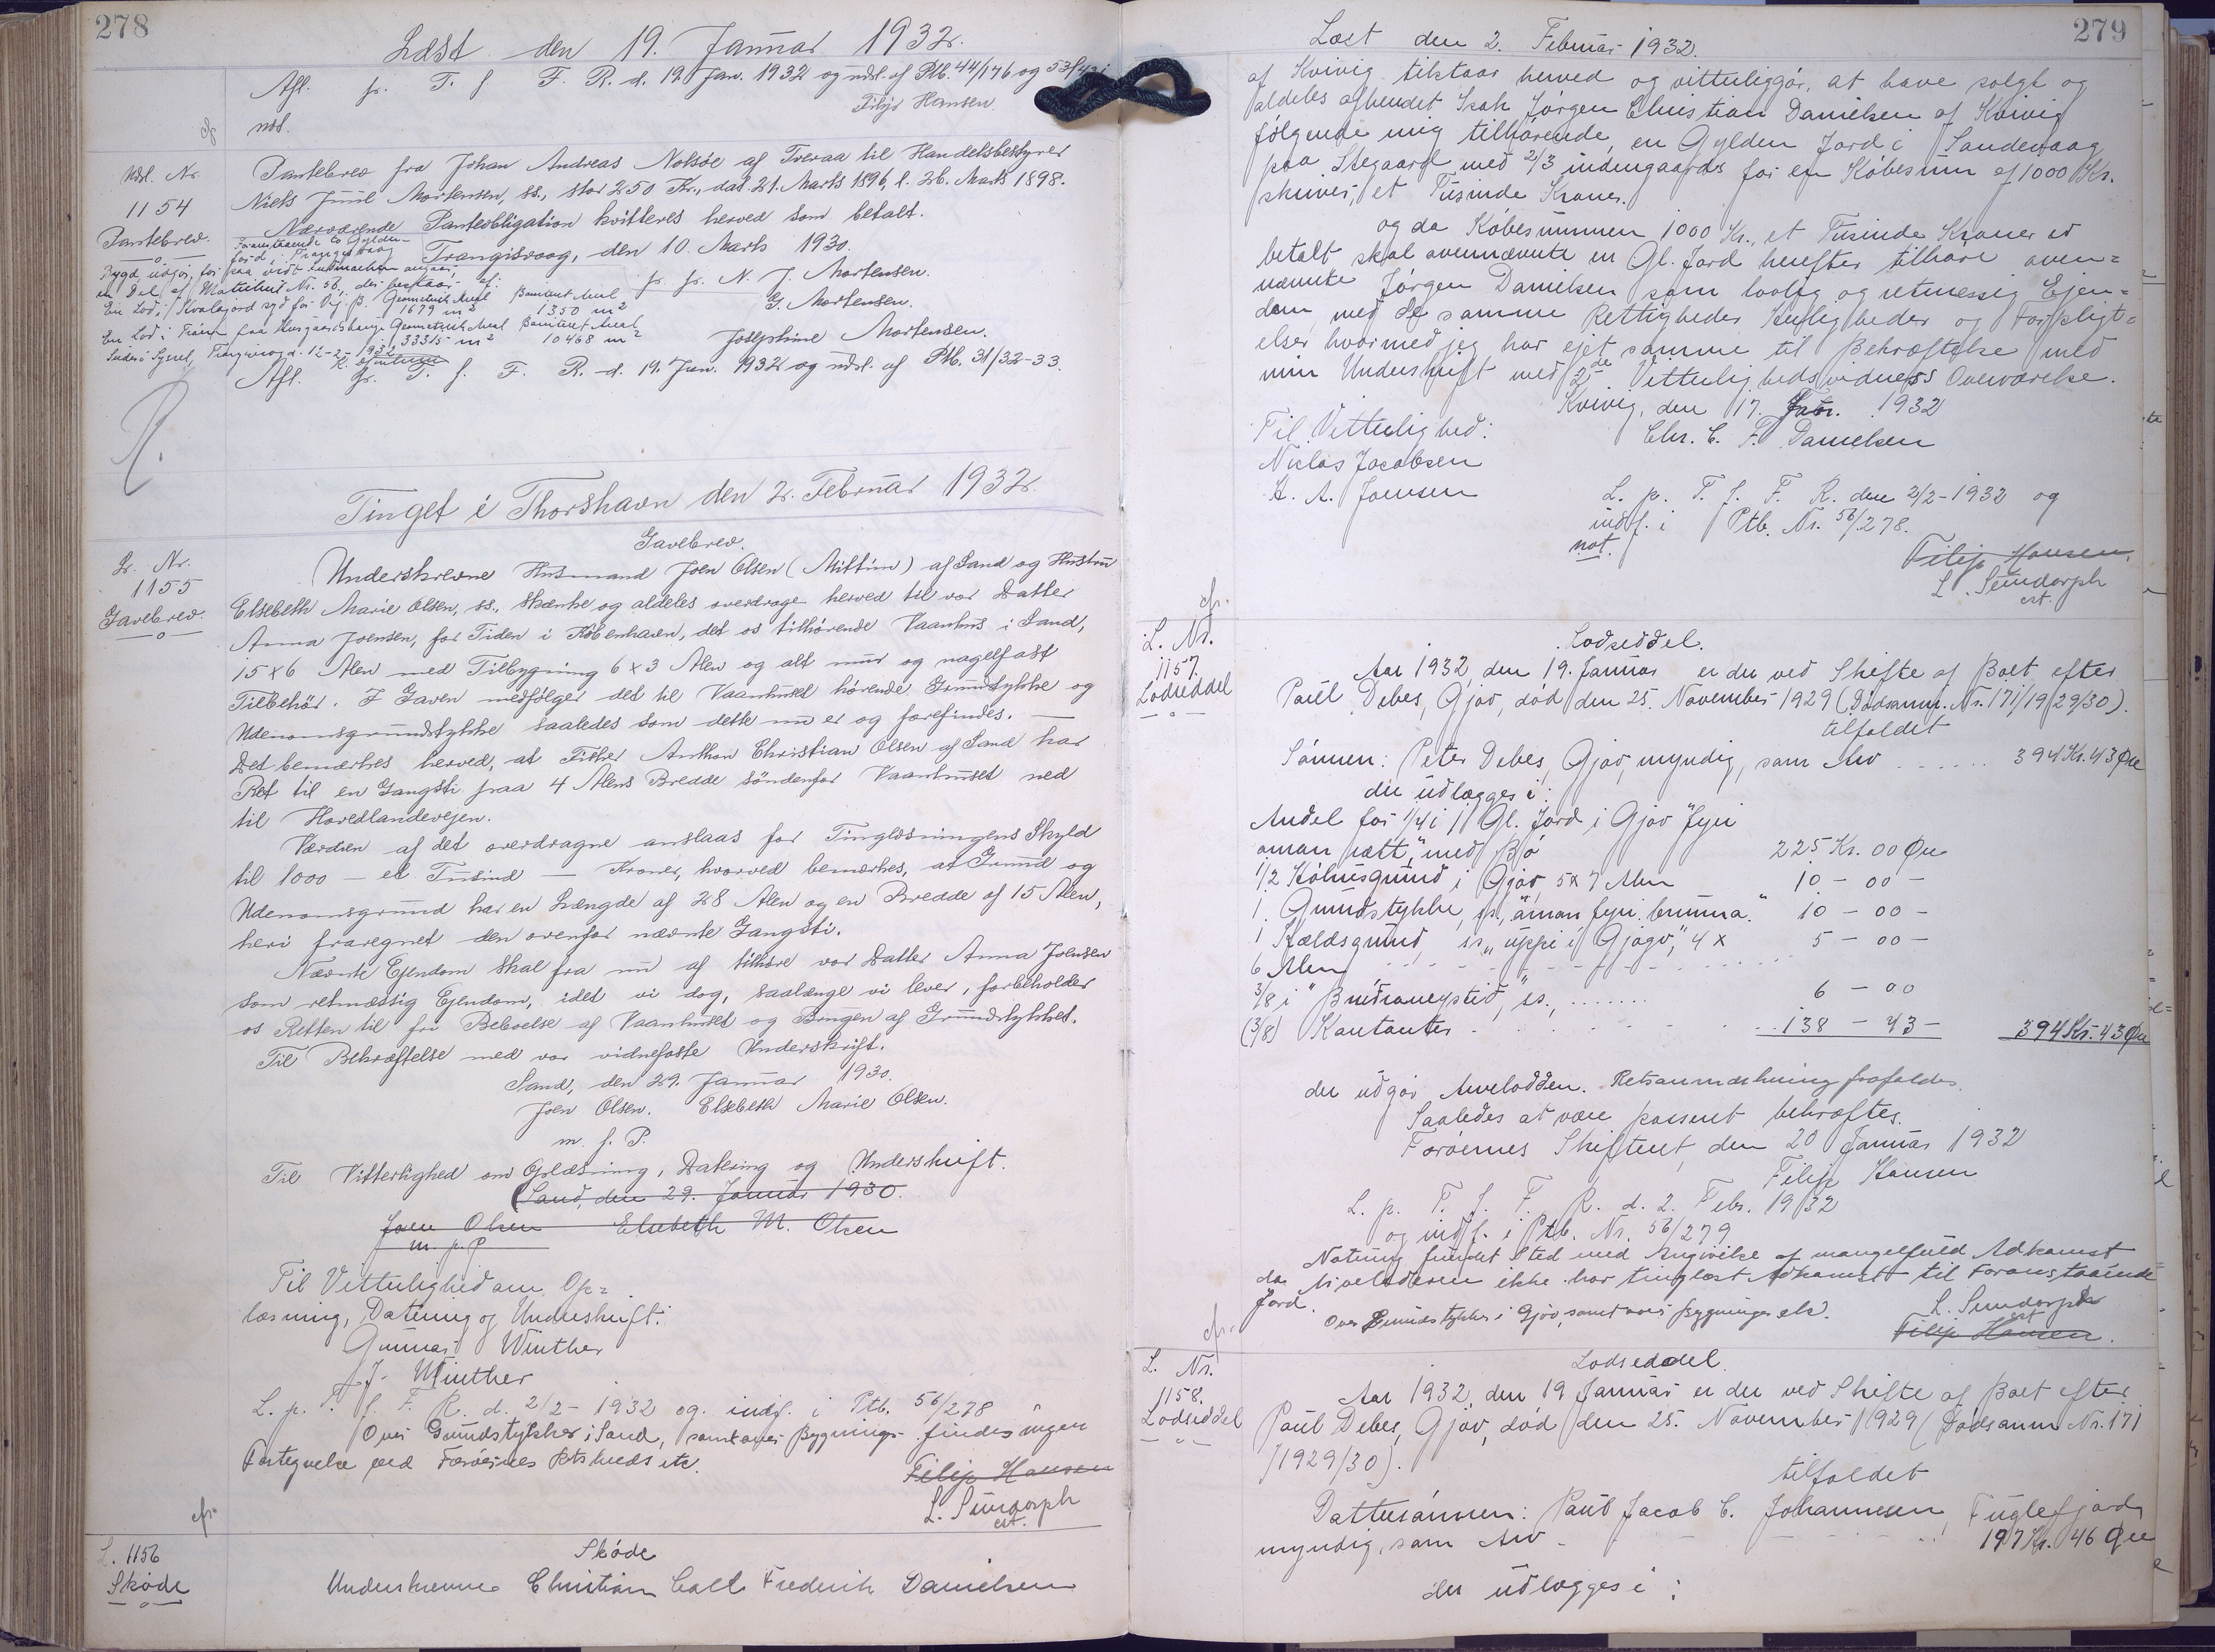 278
Læst den 19. Januar 1932.
Afl. fr. T. f. F. R. d. 19 Jan. 1932 og udsl. af Ptb. 44/176 og 53/
Filip Hansen
cfr
Udsl. Nr.
1154
Pantebrev.
Pantebrev fra Johan Andreas Nolsøe af Tveraa til Handelsbestyrer
Niels Juul Mortensen, ss., stor 250 Kr., dat. 21. Marts 1896, l. 26. Marts 1898.
Nærværende Panteobligation kvitteres herved som betalt.
Trangisvaag, den 10. Marts 1930.
pr. pr. N. J. Mortensen.
G. Mortensen.
Josephine Mortensen.
en Del af Matrikul Nr. 56, der bestaar af:
En Lod i Kvalajord syd for Vej: B. Geometrisk Areal 1679 m² Boniteret Areal 1350 m²
En Lod i Geometrisk Areal 33315 m² Boniteret Areal 10468 m²
Suderø Syssel, Trangisvaag d. 12-2-1932
Afl. fr. T. f. F. R. d. 19. Jan. 1932 og udsl. af Ptb. 31/32-33.
R.
Tinget i Thorshavn den 2. Februar 1932.
L. Nr.
1155
Gavebrev.
Gavebrev.
Underskrevne Husmand Joen Olsen (Mittún) af Sand og Hustru
Elsebeth Marie Olsen, ss., skænke og aldeles overdrage herved til vor Datter
Anna Joensen, for Tiden i København, det os tilhørende Vaanhus i Sand,
15 x 6 Alen med Tilbygning 6 x 3 Alen og alt mur og nagelfast
Tilbehör. I Gaven medfølger det til Vaanhuset hørende Grundstykke og
Udenomsgrundstykke saaledes som dette nu er og forefindes. —
Det bemærkes herved, at Fisker Anthon Christian Olsen af Sand har
Ret til en Gangsti paa 4 Alens Bredde söndenfor Vaanhuset ned
til Hovedlandevejen.
Værdien af det overdragne anslaas for Tinglæsningens Skyld
til 1000 — et Tusind — Kroner, hvorved bemærkes, at Grund og
Udenomsgrund har en Længde af 28 Alen og en Bredde af 15 Alen,
heri fraregnet den ovenfor nævnte Gangsti.
Nævnte Ejendom skal fra nu af tilhøre vor Datter Anna Joensen
som retmæssig Ejendom, idet vi dog, saalænge vi lever, forbeholder
os Retten til fri Beboelse af Vaanhuset og Brugen af Grundstykket.
Til Bekræftelse med vor vidnefaste Underskrift.
Sand, den 29. Januar 1930.
Joen Olsen. Elsebeth Marie Olsen.
m. f. P.
Til Vitterlighed om Oplæsning, Datering og Underskrift.
(Sand, den 29. Januar 1930.
Joen Olsen Elsebeth M. Olsen
m. p. P
Til Vitterlighed om Op=
læsning, Datering og Underskrift:
Gunnar Winther
J. Winther
L. p. T. f. F. R. d. 2/2-1932 og indf. i Ptb. 56/278
Over Grundstykker i Sand, samt over Bygninger findes ingen
Fortegnelse ved Færøernes Retskreds etc.
Filip Hansen
L. Sundorph
cst.
cfr.
L. 1156
Skøde
Skóde
Underskrevne Christian Carl Frederik Danielsen
279
Læst den 2. Februar 1932.
af Kvivig tilstaar herved og vitterliggør, at have solgt og
aldeles afhendet Isak Jørgen Christian Danielsen af Kvivig
fólgende mig tilhórende, en Gylden Jord i Sandevaag
paa Stegaard med 2/3 indengaards for en Købesum af 1000 Kr.
skriver, et Tusinde Kroner.
og da Købesummen 1000 Kr., et Tusinde Kroner er
betalt skal ovennævnte en Gl. Jord herefter tilhøre oven=
nævnte Jørgen Danielsen som lovlig og retmessig Ejen=
dom, med de samme Rettigheder, Herligheder og Forpligt=
elser hvormed jeg har ejet samme til Bekræftelse med
min Underskrift med 2de Vitterlighedsvidners Overværelse.
Kvivig, den 17. Jabr. 1932
Chr. C. F. Danielsen
Til Vitterlighed:
Niclas Jacobsen
H. A. Joensen
L. p. T. f. F. R. den 2/2-1932 og
indf. i Ptb. Nr. 56/278.
not.
Filip Hansen.
L. Sundorph
cst.
cfr.
L. Nr.
1157.
Lodseddel
Lodseddel.
Aar 1932, den 19. Januar er der ved Skifte af Boet efter
Paul Debes, Gjov, død den 25. November 1929 (Dødsanm. Nr. 171/1929/30).
tilfaldet
Sönnen: Peter Debes, Gjov, myndig, som Arv ...... 394 Kr. 43 Øre
der udlægges i:
Andel for 1/4 i 11 Gl. Jord i Gjov "fyri
oman rætt," med Bó 225 Kr. 00 Øre
1/2 Hólhusgrund i Gjov, 5x7 Alen 10 - 00 -
1 Grundstykke, ss., "áman fyri brunna." 10 - 00 -
1 Kældsgrund, ss., "uppi i Gjógv," 4 x 5 - 00 -
6 Alen
3/8 i ss., ....... 6 - 00
(3/8) Kontanter 138 - 43 - 394 Kr. 43 Øre
der udgør Arvelodden. Retsanmærkning frafaldes.
Saaledes at være passeret bekræftes.
Færóernes Skifteret, den 20 Januar 1932
Filip Hansen
L. p. T. f. F. R. d. 2. Febr. 1932
og indf. i Ptb. Nr. 56/279
Notering fundet Sted med Angivelse af mangelfuld Adkomst
da Arveladeren ikke har tinglæst Adkomst til Foranstaaende
Jord.
Over Grundstykker i Gjov, samt over Bygninger etc.
L. Sundorph
cst
Filip Hansen.
cfr.
L. Nr.
1158.
Lodseddel
Lodseddel.
Aar 1932, den 19 Januar er der ved Skifte af Boet efter
Paul Debes, Gjov, død den 25. November 1929 (Dødsanm Nr. 171
/1929/30).
tilfaldet
Dattersónnen: Paul Jacob C. Johannesen, Fuglefjord,
myndig, som Arv 197 Kr. 46 Øre
der udlægges i: